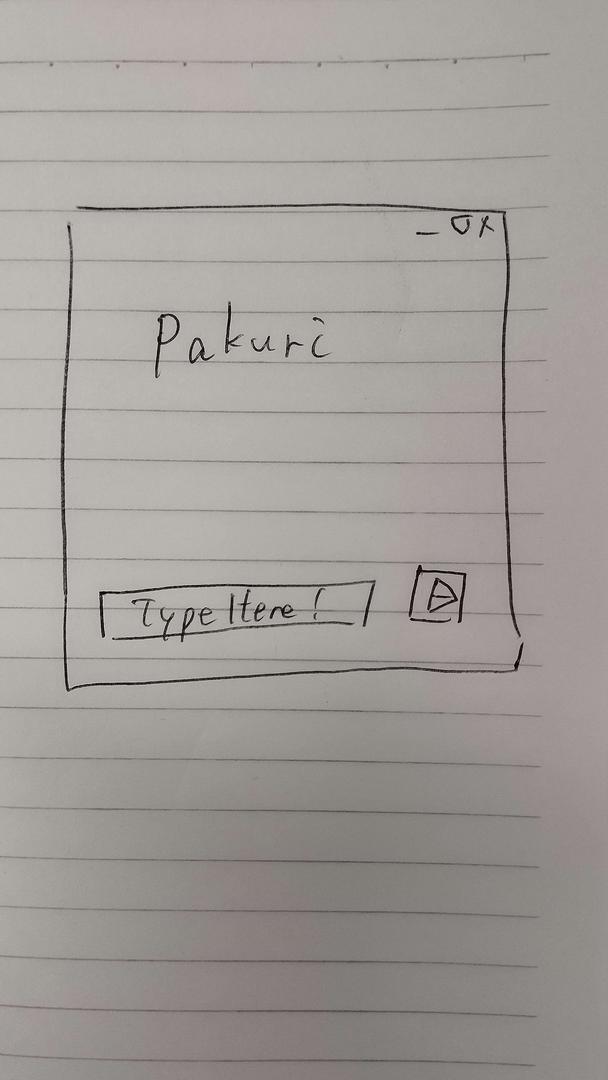 Pakuri
Type Here!